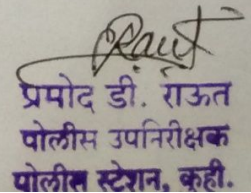 Raut
प्रमोद डी. राऊत
पोलीस उपनिरीक्षक
पोलीस स्टेशन, कुही.